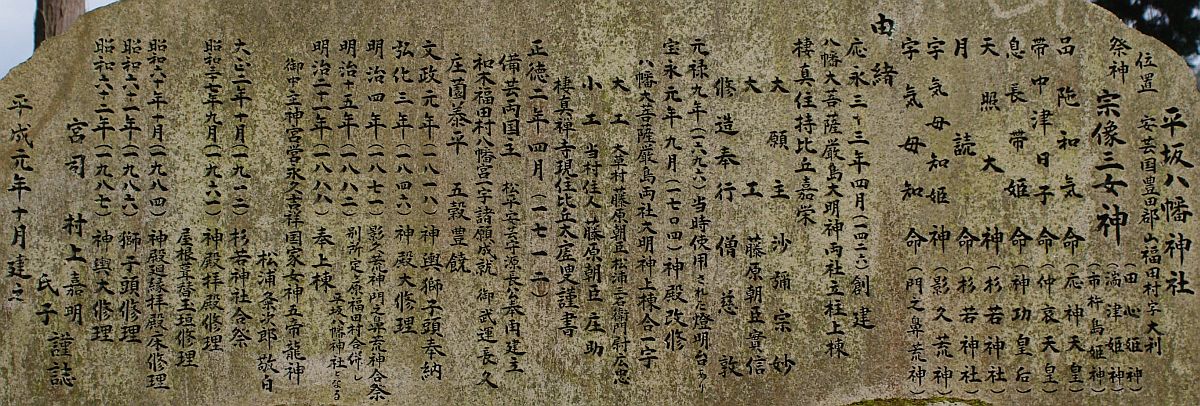 平坂八幡神社
位置　安芸国豊田郡上福田村字大利
祭神　宗像三女神（田心姫神）（湍津姫神）（市杵島姫神）
品陀和気命（応神天皇）
帯中津日子命（仲哀天皇）
息長帯姫命（神功皇后）
天照大神（杉若神社）
月読命（杉若神社）
宇気母知姫神（影久荒神）
宇気母知命（門之鼻荒神）
由緒
応永三十三年四月（一四二六）創建
八幡大菩薩厳島大明神両社立柱上棟
棲真住持比丘嘉栄
大願主　沙彌宗妙
大工　藤原朝臣實信
修造奉行　僧慈敦
元禄九年（一六九六）当時使用された燈明台あり
宝永元年九月（一七〇四）神殿改修
八幡大菩薩厳島両社大明神上棟合一宇
大工　大草村藤原朝臣松浦 衛門尉広忠
小工　当村住人藤原朝臣庄助
棲真禅寺現住比丘大座叟謹書
正徳二年四月（一七一二）
備芸両国主　松平安芸守源長公本内建主
和木福田村八幡宮一宇諸願成就　御武運長久
庄園泰平　五穀豊饒
文政元年（一八一八）神輿獅子頭奉納
弘化三年（一八四六）神殿大修理
明治四年（一八七一）影久荒神門之鼻荒神合祭
明治十五年（一八八二）別所定原福田村合併し平坂八幡神社となる
明治二十一年（一八八八）奉上棟
御中主神宮営永久吉祥国家女神五帝龍神
松浦粂少郎敬白
大正二年十月（一九一三）杉若神社合祭
昭和三七年九月（一九六二）神殿拝殿修理
屋根葺替玉垣修理
昭和六十年十月（一九八四）神殿廻縁拝殿床修理
昭和六十一年（一九八六）獅子頭修理
昭和六十二年（一九八七）神輿大修理
宮司　村上嘉明　謹誌
氏子
平成元年十月建之